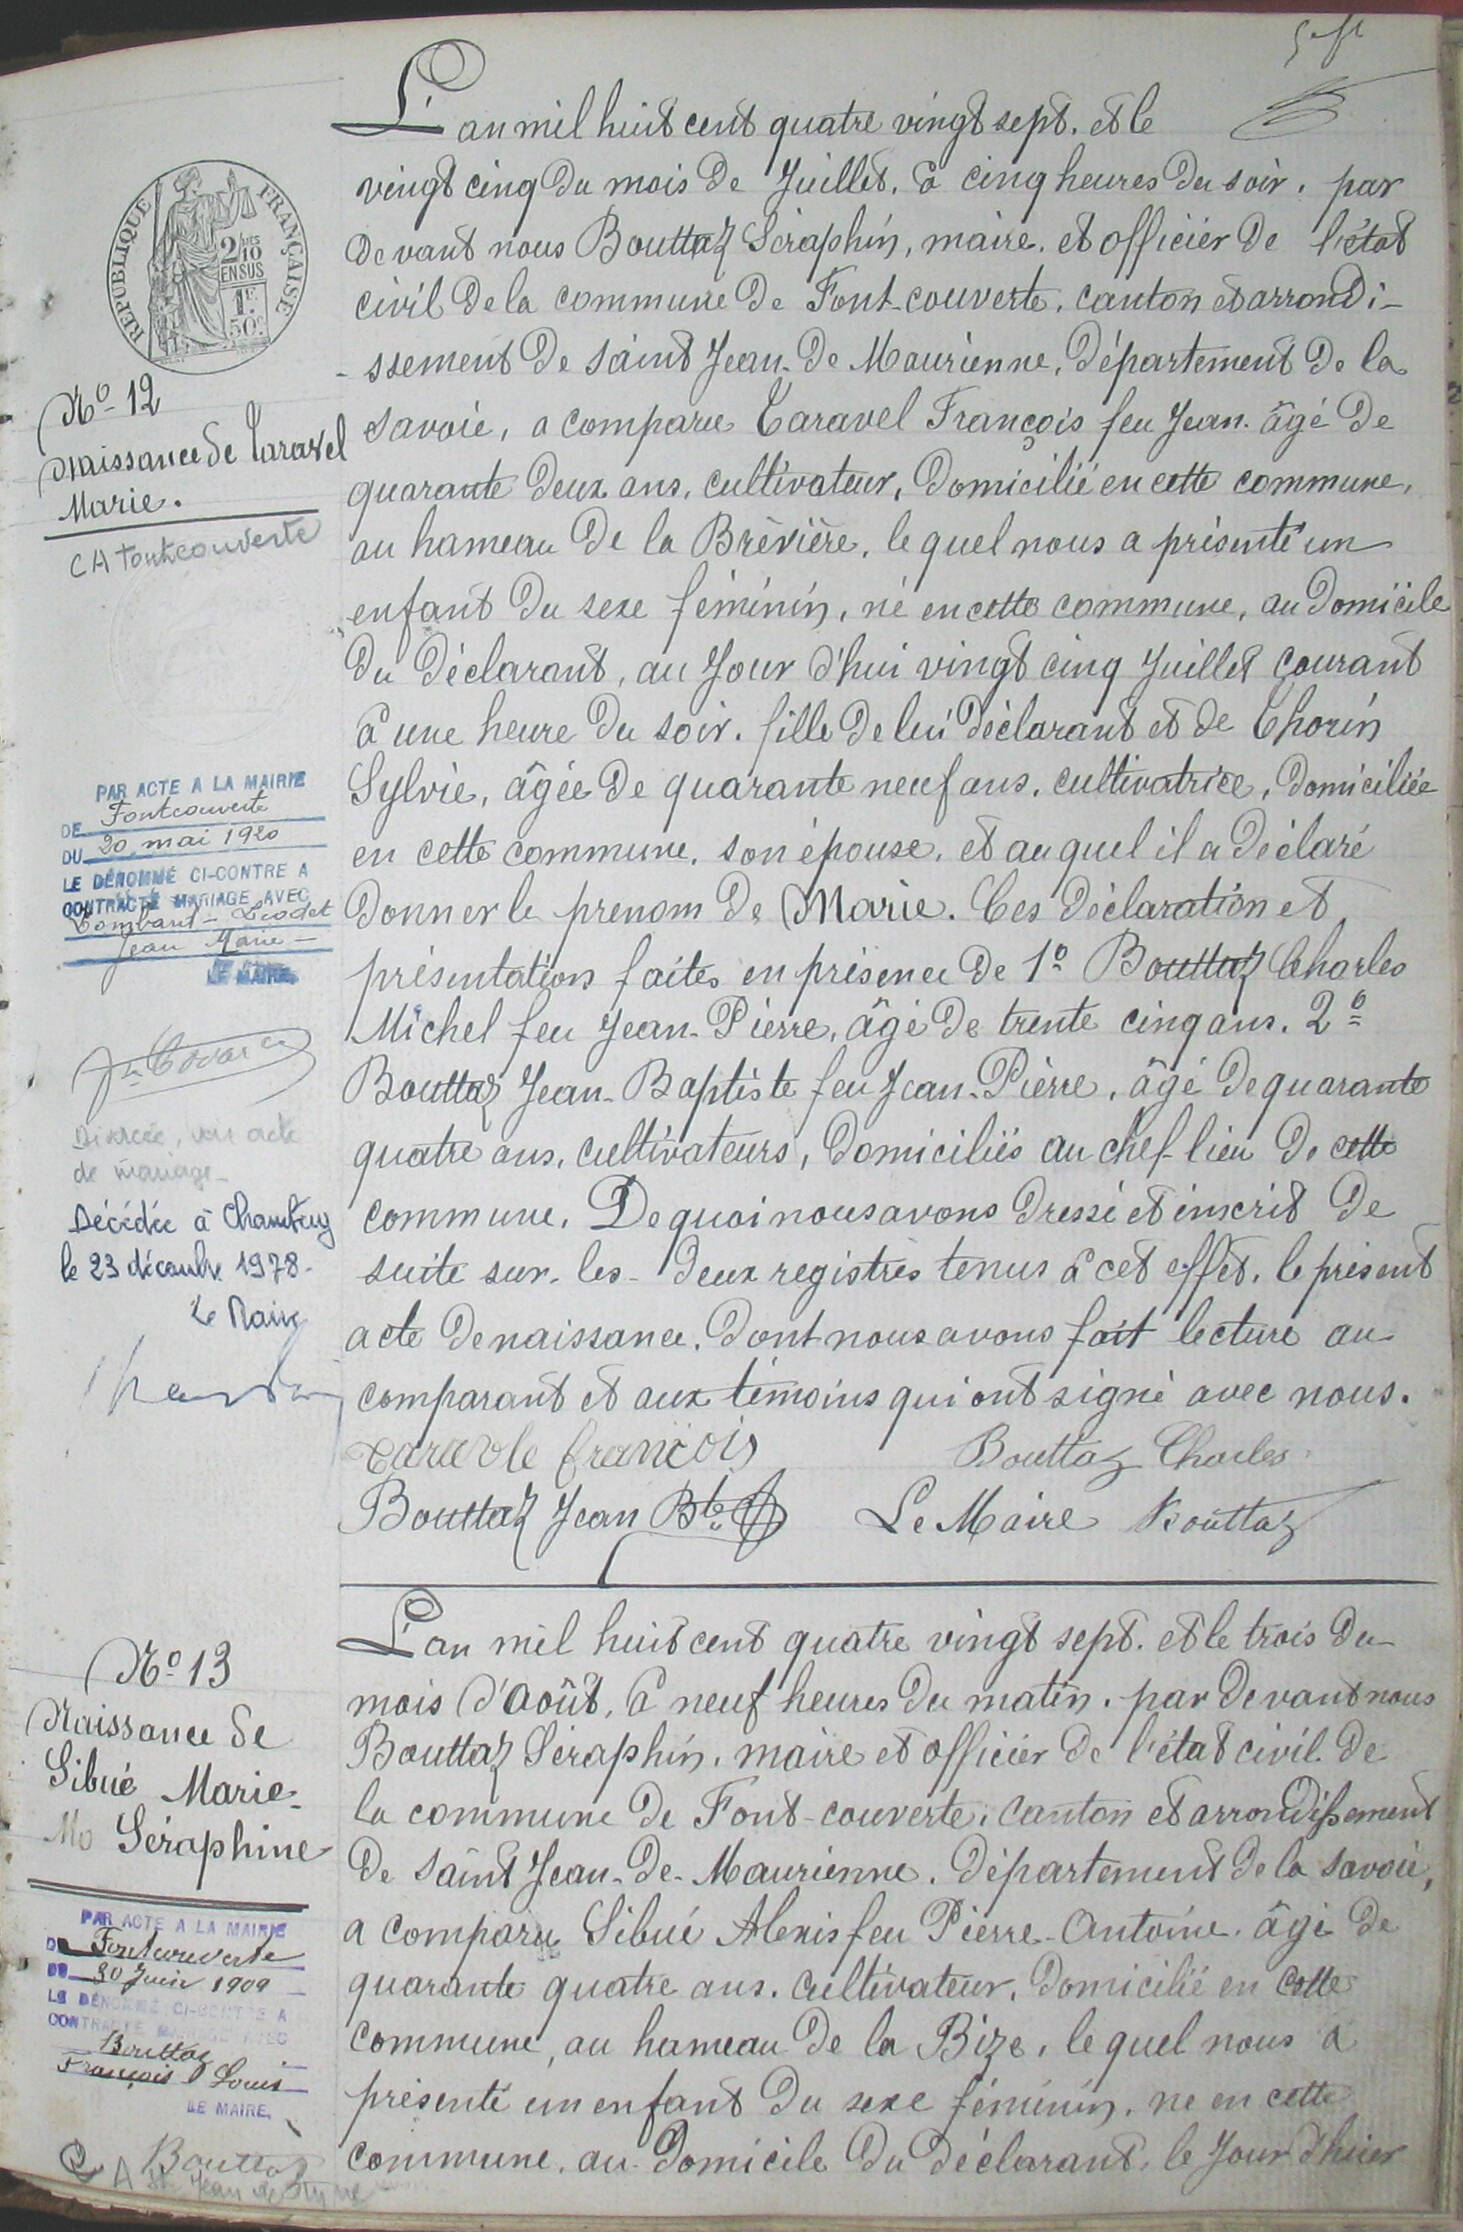 5e ft
L'an mil huit cent quatre vingt sept. et le
vingt cinq du mois de Juillet, à cinq heures du soir, par
devant nous Bouttaz Séraphin, maire, et officier de l'état
civil de la commune de Font-couverte, canton et arrondi-
-ssement de Saint Jean-de Maurienne, département de la
Savoie, a comparu Taravel François feu Jean âgé de
quarante deux ans, cultivateur, domicilié en cette commune,
au hameau de la Brévière, le quel nous a présenté un
enfant du sexe féminin, né en cette commune, au domicile
du déclarant, au Jour d'hui vingt cinq Juillet courant
à une heure du soir. fille de lui déclarant et de Thorin
Sylvie, âgée de quarante neuf ans, cultivatrice, domiciliée
en cette commune, son épouse, et au quel il a déclaré
donner le prenom de Marie. Ces déclaration et
présentation faites en présence de 1º Bouttaz Charles
Michel feu Jean-Pierre, âgé de trente cinq ans. 2º
Bouttaz Jean-Baptiste feu Jean-Pierre, âgé de quarante
quatre ans, cultivateurs, domiciliés au chef-lieu de cette
commune. De quoi nous avons dressé et inscrit de
suite sur les deux registres tenus à cet effet, le présent
acte de naissance, dont nous avons fait lecture au
comparant et aux témoins qui ont signé avec nous.
Taravele françois Bouttaz Charles
Bouttaz Jean Bte Le Maire Bouttaz
RÉPUBLIQUE FRANÇAISE
2/10
EN SUS
1F
50C
Nº 12
Naissance de Taravel
Marie.
CA Fontcouverte
PAR ACTE A LA MAIRIE
DE Fontcouverte
DU 20 mai 1920
LE DÉNOMMÉ CI-CONTRE A
CONTRACTÉ MARIAGE AVEC
Jean Marie
LE MAIRE
Divorcée, voir acte
de mariage
Décédée à Chambéry
le 23 décembre 1978.
Le Maire
L'an mil huit cent quatre vingt sept. et le trois du
mois d'août, à neuf heures du matin, par devant nous
Bouttaz Séraphin, maire et officier de l'état civil de
la commune de Font-couverte, canton et arrondissement
de Saint Jean-de-Maurienne, département de la Savoie,
a comparu Sibué Alexis feu Pierre-Antoine, âgé de
quarante quatre ans, cultivateur, domicilié en cette
commune, au hameau de la Bize, le quel nous a
présenté un enfant du sexe féminin, né en cette
commune, au domicile du déclarant, le Jour d'hier
Nº 13
Naissance de
Sibué Marie-
Séraphine
PAR ACTE A LA MAIRIE
DE Fontcouverte
DU 30 Juin 1909
LE DÉNOMMÉ CI-CONTRE A
CONTRACTÉ MARIAGE AVEC
Bouttaz
François Louis
LE MAIRE,
Bouttaz